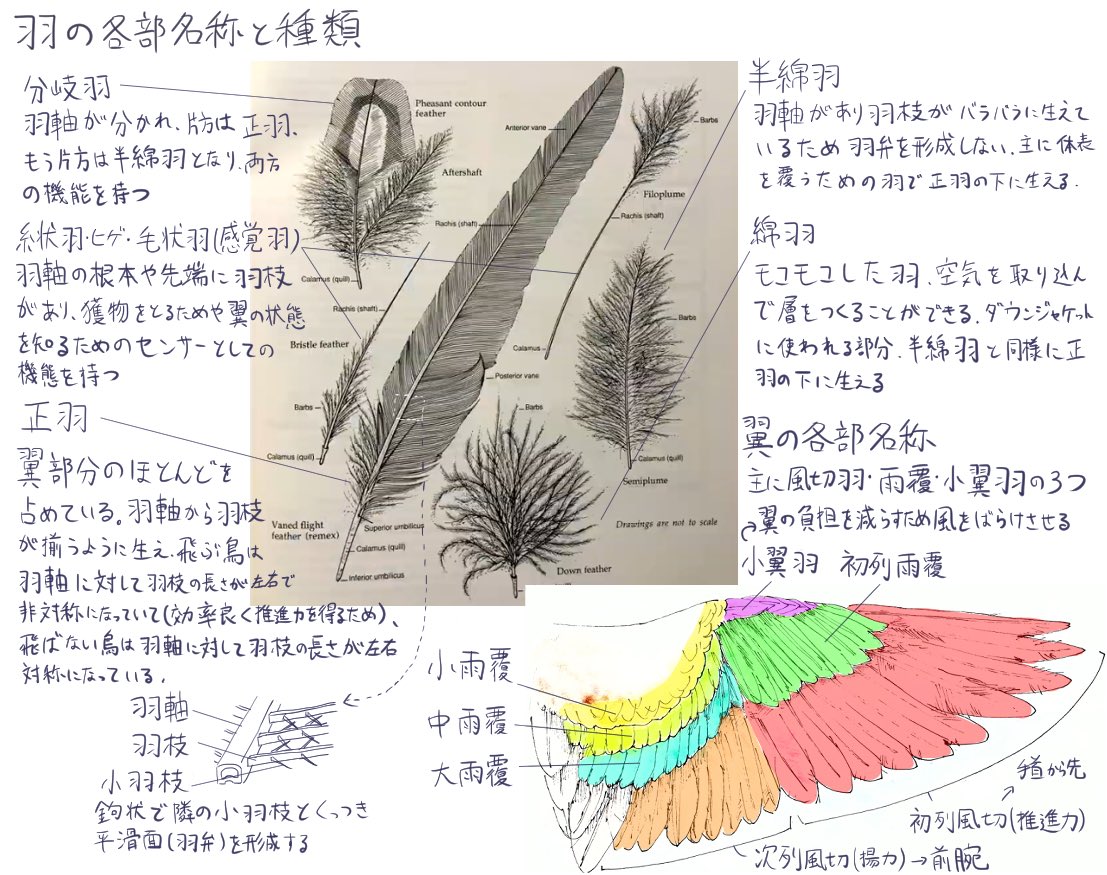 羽の各部名称と種類
分岐羽
羽軸が分かれ、片方は正羽、
もう片方は半綿羽となり、両方
の機能を持つ
糸状羽・ヒゲ・毛状羽(感覚羽)
羽軸の根本や先端に羽枝
があり、獲物をとるためや翼の状態
を知るためのセンサーとしての
機能を持つ
正羽
翼部分のほとんどを
占めている。羽軸から羽枝
が揃うように生え、飛ぶ鳥は
羽軸に対して羽枝の長さが左右で
非対称になっていて(効率良く推進力を得るため)、
飛ばない鳥は羽軸に対して羽枝の長さが左右
対称になっている.
羽軸
羽枝
小羽枝
鉤状で隣の小羽枝とくっつき
平滑面(羽弁)を形成する
Pheasant contour
feather
Aftershaft
Anterior vane
Rachis (shaft)
Calamus (quill)
Rachis (shaft)
Bristle feather
Barbs
Calamus (quill)
Vaned flight
feather (remex)
Superior umbilicus
Calamus (quill)
Inferior umbilicus
Posterior vane
Barbs
Down feather
Barbs
Filoplume
Rachis (shaft)
Calamus
Barbs
Calamus (quill)
Semiplume
Drawings are not to scale
半綿羽
羽軸があり羽枝がバラバラに生えて
いるため羽弁を形成しない.主に体表
を覆うための羽で正羽の下に生える.
綿羽
モコモコした羽.空気を取り込ん
で層をつくることができる.ダウンジャケット
に使われる部分.半綿羽と同様に正
羽の下に生える
翼の各部名称
主に風切羽・雨覆・小翼羽の3つ
翼の負担を減らすため風をばらけさせる
小翼羽
初列雨覆
小雨覆
中雨覆
大雨覆
手首から先
初列風切(推進力)
次列風切(揚力)→前腕